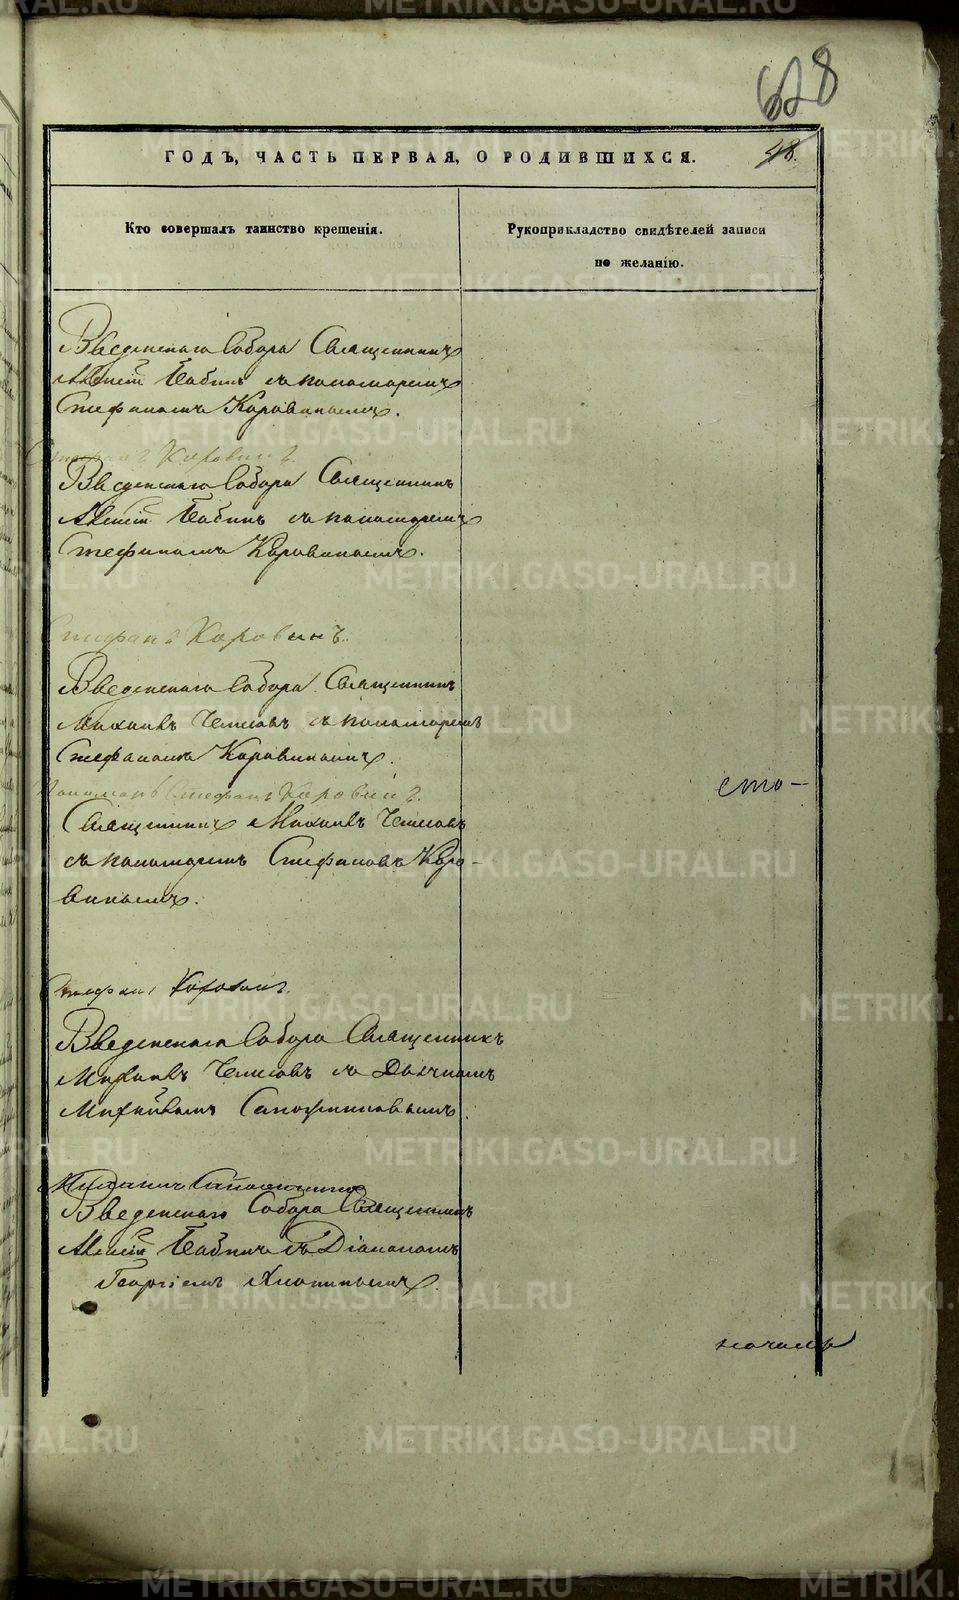 628
ГОДЪ, ЧАСТЬ ПЕРВАЯ, О РОДИВШИХСЯ.
48.
Кто совершалъ таинство крещенія.
Рукоприкладство свидѣтелей записи
по желанію.
Введенскаго Собора Священникъ
Алексій Бабинъ съ пономаремъ
Стефаномъ Коровинымъ.
Стефанъ Коровинъ.
Введенскаго Собора Священникъ
Алексій Бабинъ съ пономаремъ
Стефаномъ Коровинымъ.
Стефанъ Коровинъ.
Введенскаго Собора Священникъ
Михаилъ съ пономаремъ
Стефаномъ Коровинымъ.
Пономарь Стефанъ Коровинъ.
сто-
Священникъ Михаилъ
съ пономаремъ Стефаномъ Коро-
винымъ.
Стефанъ Коровинъ.
Введенскаго Собора Священникъ
Михаилъ съ Дьячкомъ
Михаиломъ
Введенскаго Собора Священникъ
Алексій Бабинъ съ Діакономъ
Георгіемъ
METRIKI.GASO-URAL.RU